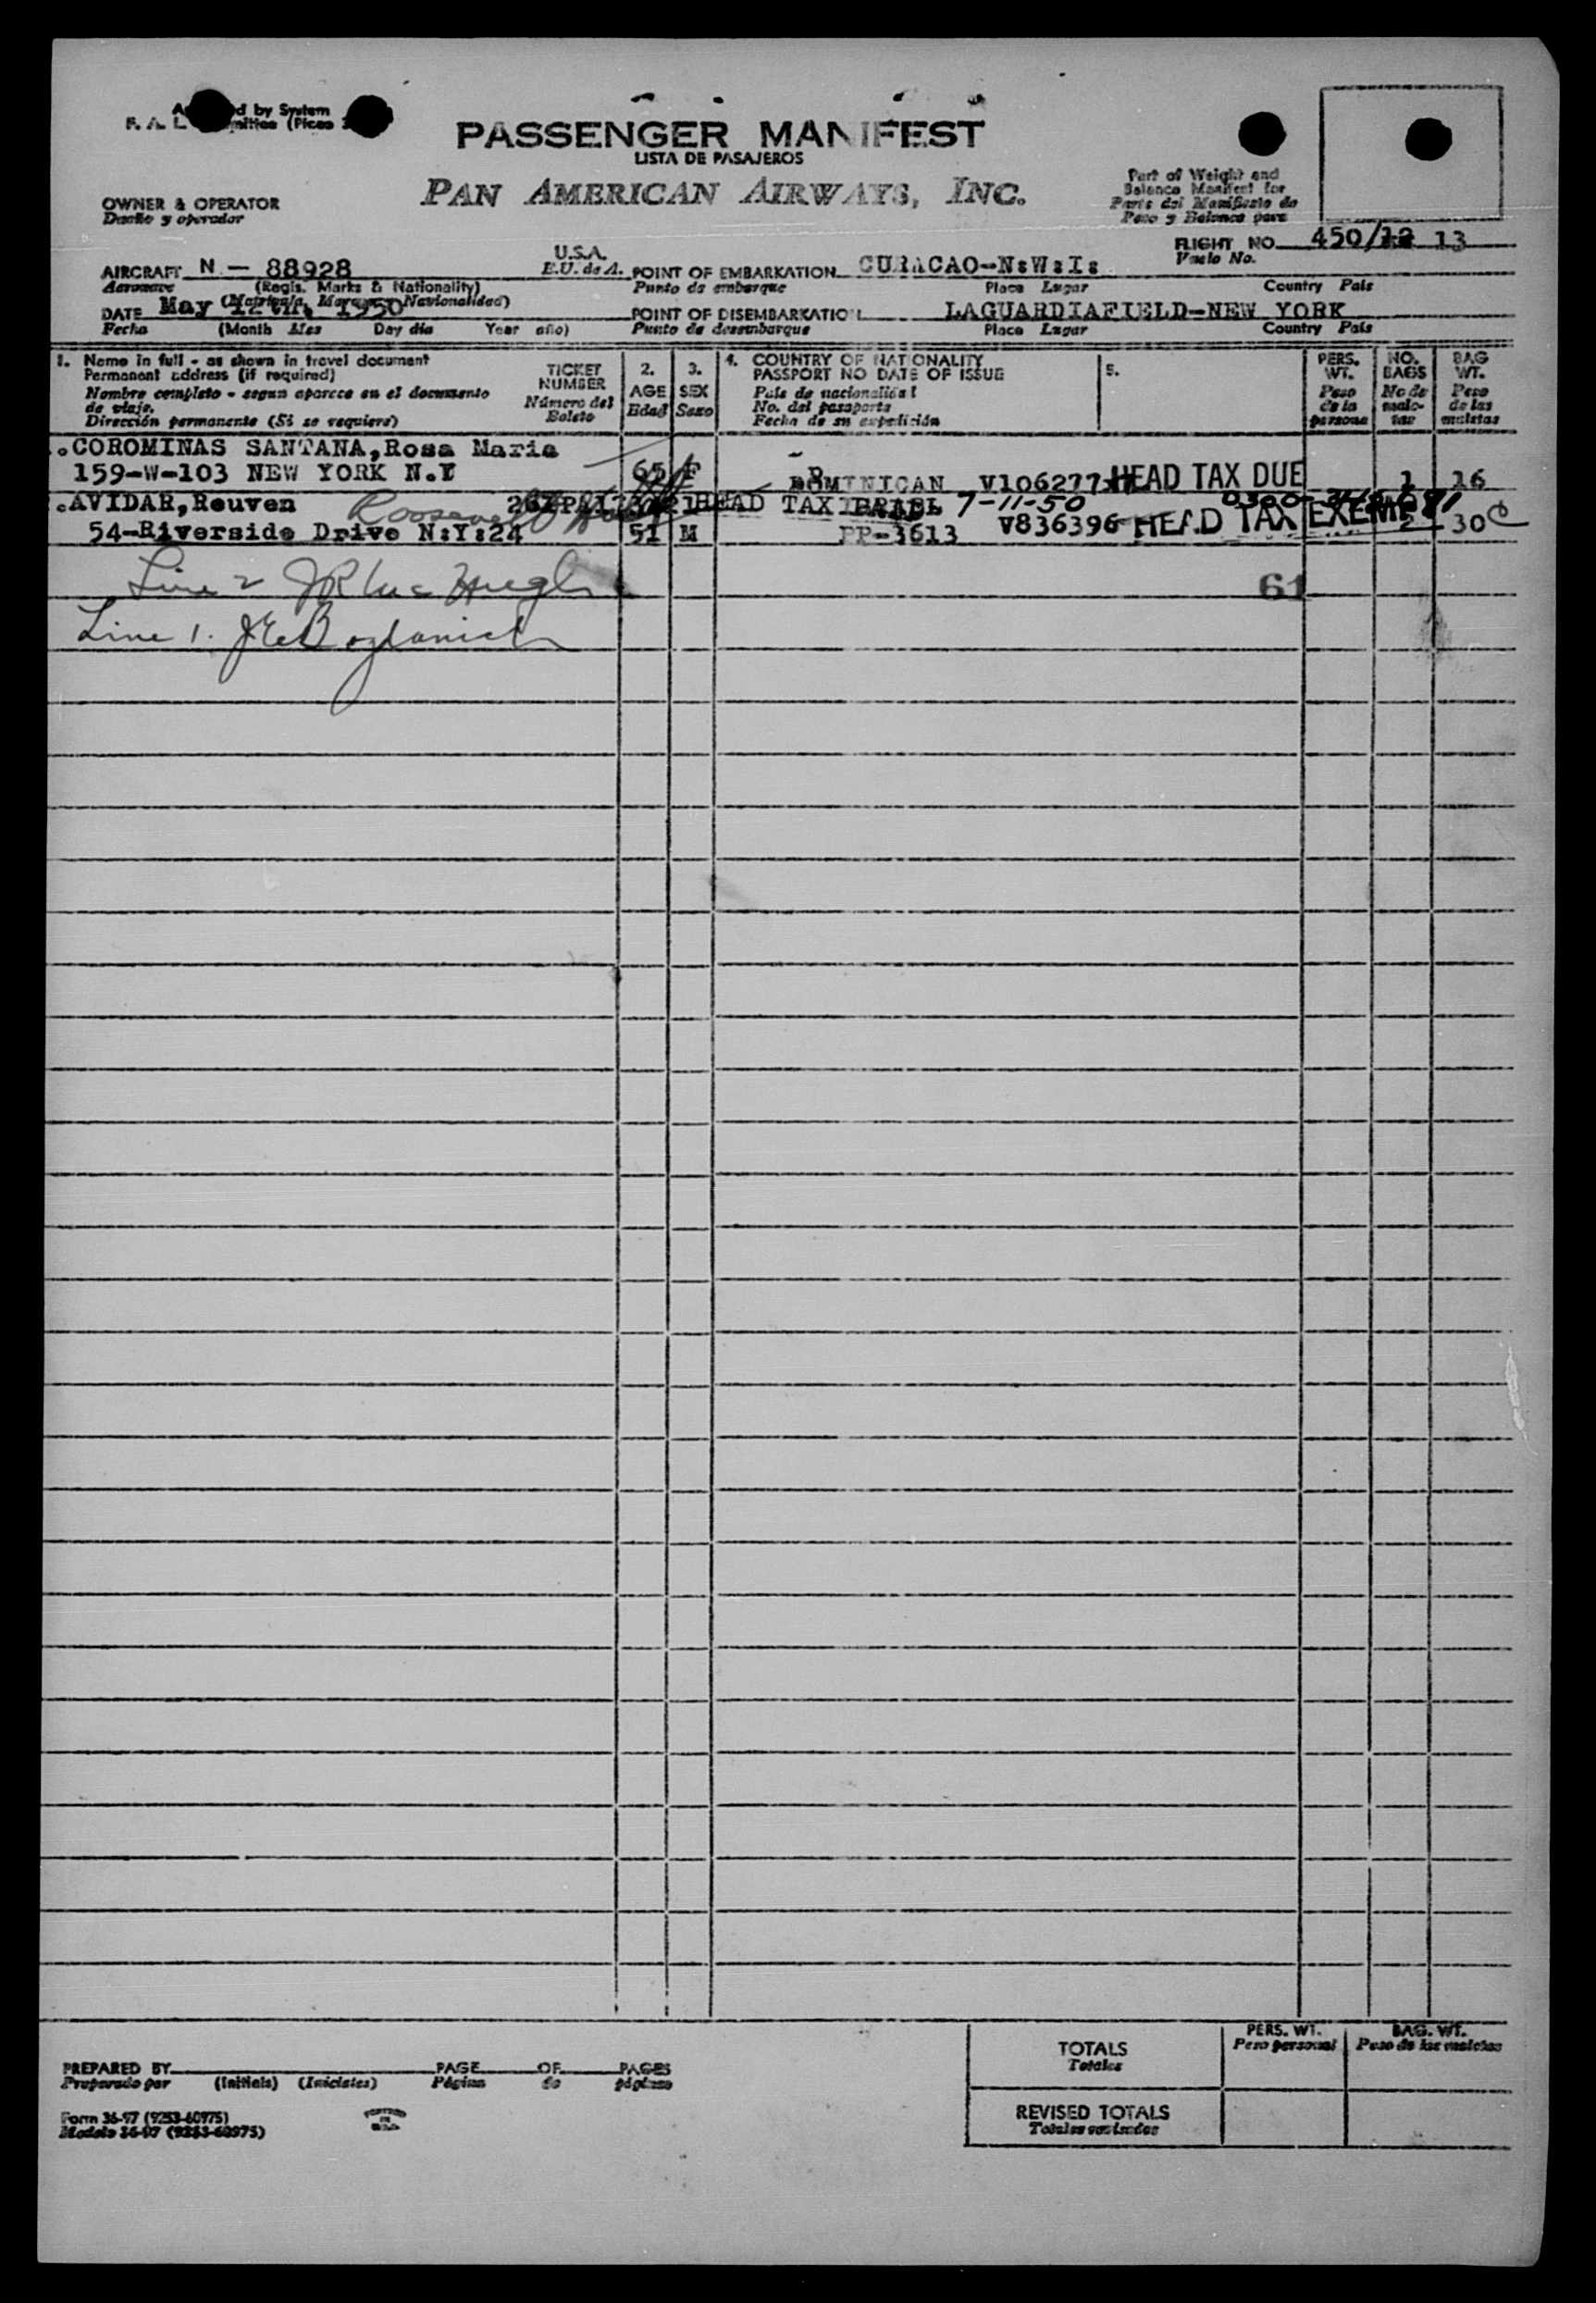 PASSENGER MANIFEST
LISTA DE PASAJEROS
PAN AMERICAN AIRWAYS, INC.
OWNER & OPERATOR
Dueño y operador
Part of Weight and
Balance Manifest for
Parte del Manifiesto de
Peso y Balance para
FLIGHT NO. 450/12 13
Vuelo No.
AIRCRAFT N - 88928 U.S.A. POINT OF EMBARKATION CURACAO-N:W:I:
Aeronave (Regis. Marks & Nationality) E.U. de A. Punto de embarque Place Lugar Country País
(Matrícula, Marcas y Nacionalidad)
DATE May 12th, 1950 POINT OF DISEMBARKATION LAGUARDIAFIELD-NEW YORK
Fecha (Month Mes Day día Year año) Punto de desembarque Place Lugar Country País
1. Name in full - as shown in travel document
Permanent address (if required)
Nombre completo - segun aparece en el documento
de viaje.
Dirección permanente (Si se requiere)
TICKET
NUMBER
Número del
Boleto
2.
AGE
Edad
3.
SEX
Sexo
4. COUNTRY OF NATIONALITY
PASSPORT NO DATE OF ISSUE
País de nacionalidad
No. del pasaporte
Fecha de su expedición
5.
PERS.
WT.
Peso
de la
persona
NO.
BAGS
No de
male-
tas
BAG
WT.
Peso
de las
maletas
COROMINAS SANTANA, Rosa Maria
159-W-103 NEW YORK N.Y 65 F DOMINICAN V106277 HEAD TAX DUE 1 16
AVIDAR, Reuven Roosevelt HEAD TAX ISRAEL 7-11-50
54-Riverside Drive N:Y:24 51 M PP-3613 V836396 HEAD TAX EXEMPT 2 30
Line 2
61
Line 1.
TOTALS
Totales
PERS. WT.
Peso personal
BAG. WT.
Peso de las maletas
PREPARED BY PAGE OF PAGES
Preparado por (Initials) (Iniciales) Página de páginas
REVISED TOTALS
Totales revisados
Form 36-97 (9253-60975)
Modelo 36-97 (9253-60975)